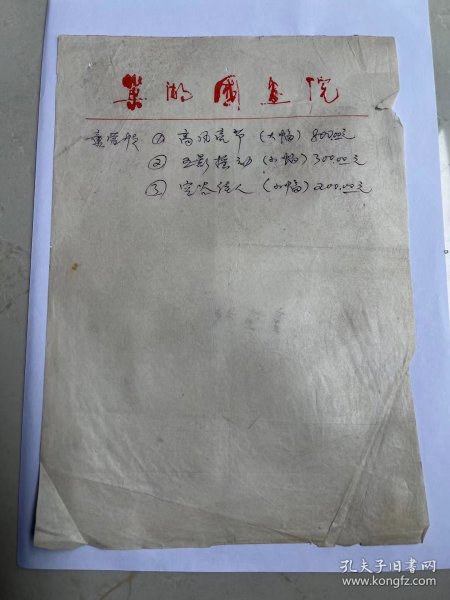 巢湖国画院
① 高风亮节 (大幅) 800.00元
② 玉影摇动 (小幅) 300.00元
③ 空谷佳人 (小幅) 200.00元
孔夫子旧书网
www.kongfz.com